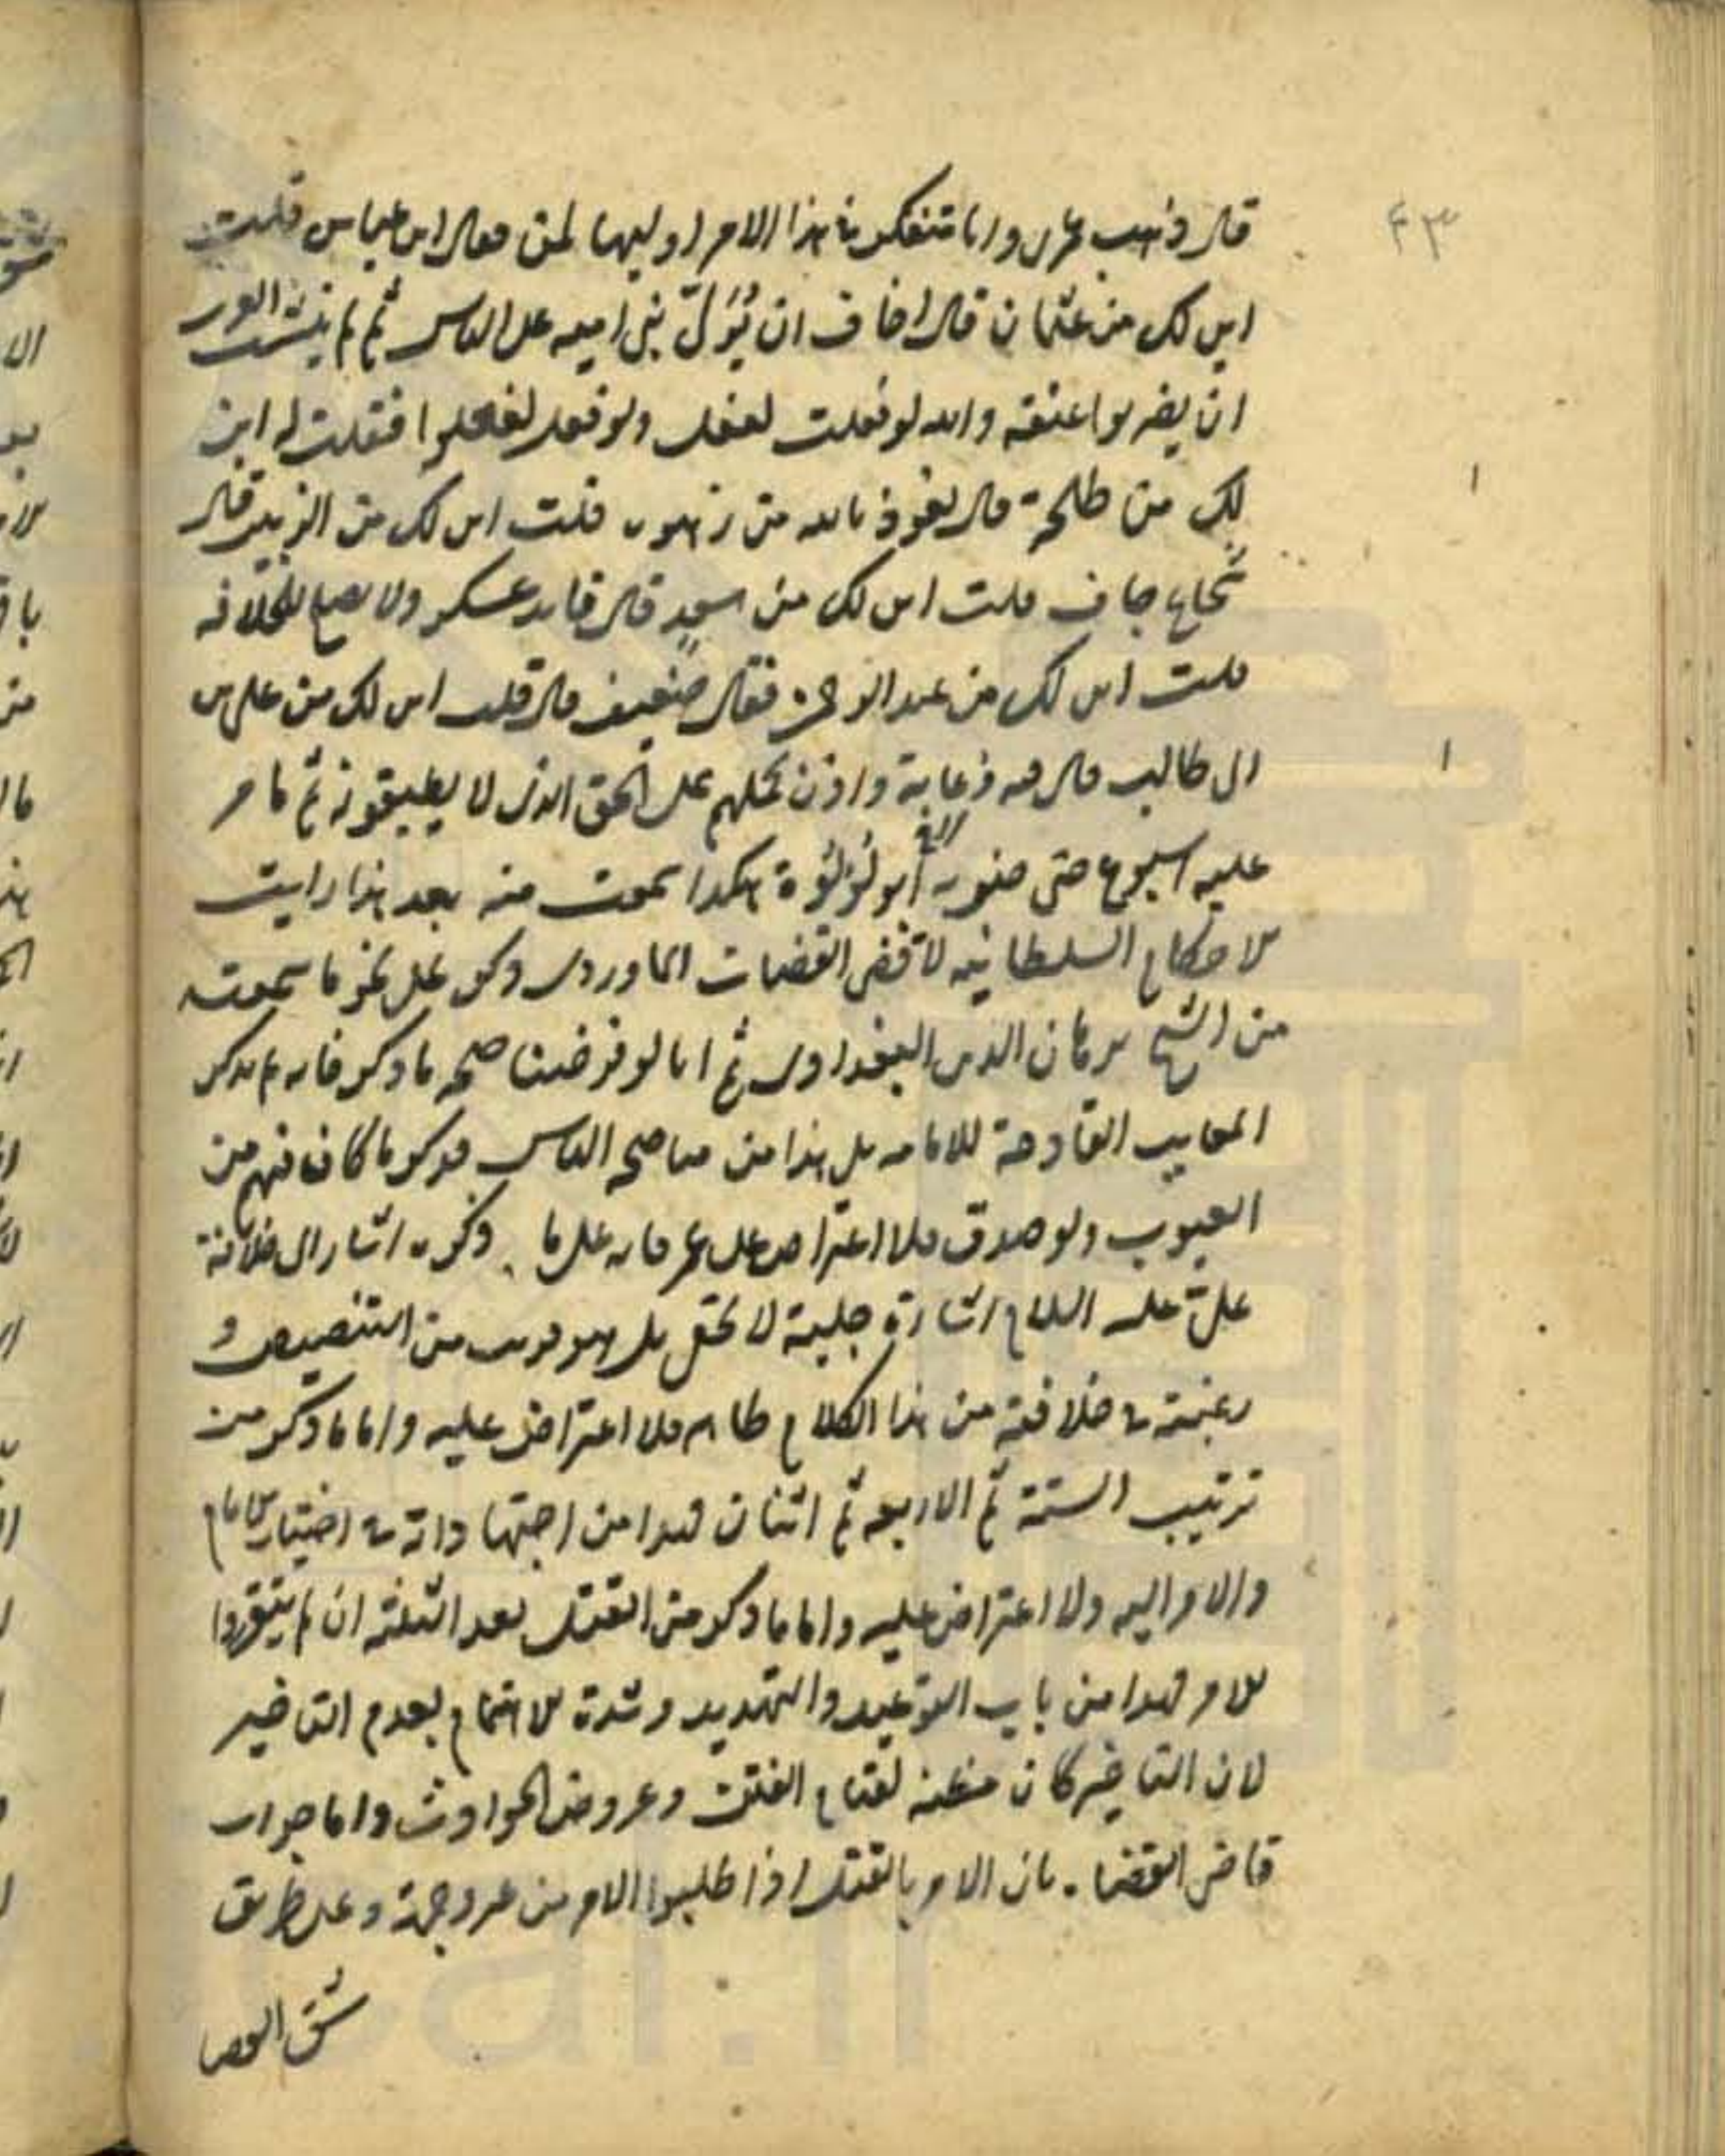 ۴۳
قال ذهب عمرى وانا متفكر فى هذا الامر اوليها لمن فقال ابن عباس قلت
اين لك من عثمان قال اخاف ان يُوَلّى بنى اميه على الناس ثم لم يلبث العرب
ان يضربوا عنقه والله لو فعلت لفعل ولو فعل لفعلوا فقلت له اين
لك من طلحة قال نعوذ بالله من زهوه قلت اين لك من الزبير قال
شجاع جاف قلت اين لك من سعد قال قايد عسكر ولا يصلح للخلافه
قلت اين لك من عبد الرحمن فقال ضعيف قال قلت اين لك من على بن
ابى طالب قال فيه دعابة واذن يحملهم على الحق الذى لا يطيقونه ثم ما مر
عليه اسبوع حتى ضربه ابو لؤلؤة هكذا سمعت منه بعد هذا رايت
الاحكام السلطانيه لاقضى القضات الماوردى ذكر على نحو ما سمعت
من الشيخ برهان الدين البغدادى ثم انا لو فرضنا صحه ما ذكر فانه لم يذكر
المعايب القادحة للامامه بل هذا من مناصحه الناس فذكر ما كان فيهم من
العيوب ولو صدق فلا اعتراض على عمر فانه على ما ذكره اشار الى خلافة
علىّ عليه السلام اشارة جلية لا تخفى بل هو قريب من التنصيص و
رغبته فى خلافته من هذا الكلام ظاهر فلا اعتراض عليه واما ما ذكر من
ترتيب الستة ثم الاربعه ثم اثنان فهذا من اجتهاداته فى اختيار الامام
والامر اليه ولا اعتراض عليه واما ما ذكر من القتل بعد الثلثه ان لم يتقرروا
للامر فهذا من باب التوعيد والتهديد وشدة الاهتمام بعدم التاخير
لان التاخير كان مظنه لقيام الفتن وعروض الحوادث واما جواب
قاضى القضاه بان الامر بالقتل اذا طلبوا الامر من غير وجهه وعلى طريق
شق العصا